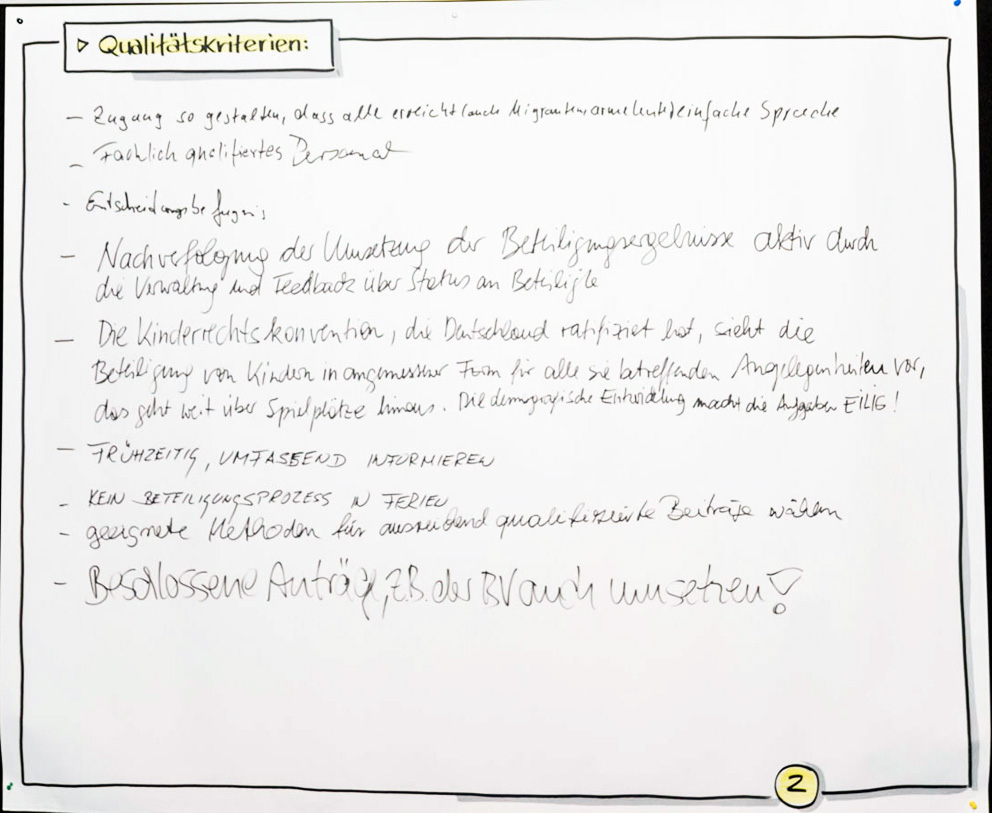 ▷ Qualitätskriterien:
– Zugang so gestalten, dass alle erreicht (auch Migranten, arme Leute) einfache Sprache
– Fachlich qualifiertes Personal
- Entscheidungsbefugnis
– Nachverfolgung der Umsetzung der Beteiligungsergebnisse aktiv durch
die Verwaltung und Feedback über Status an Beteiligte
– Die Kinderrechtskonvention, die Deutschland ratifiziet hat, sieht die
Beteiligung von Kindern in angemessener Form für alle sie betreffenden Angelegenheiten vor,
das geht weit über Spielplätze hinaus. Die demografische Entwicklung macht die Aufgaben EILIG!
– FRÜHZEITIG, UMFASSEND INFORMIEREN
- KEIN BETEILIGUNGSPROZESS IN FERIEN
- geeignete Methoden für ausreichend qualifizierte Beiträge wählen
- Beschlossene Anträge, z.B. der BV auch umsetzen!
2